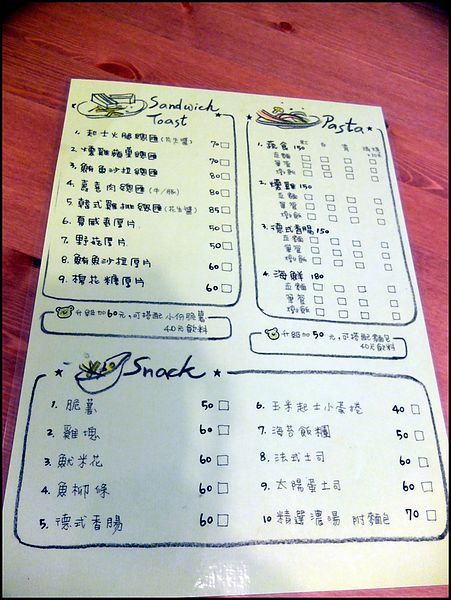 Sandwich
Toast
1. 起士火腿總匯(花生醬) 70
2. 燻雞蘋果總匯 70
3. 鮪魚沙拉總匯 80
4. 喜喜肉總匯(牛/豚) 80
5. 韓式雞排總匯(花生醬) 85
6. 夏威夷厚片 50
7. 野菇厚片 50
8. 鮪魚沙拉厚片 60
9. 棉花糖厚片 60
升級加60元,可搭配小份脆薯
40元飲料
Pasta
紅 白 青
1. 蔬食 150
直麵
筆管
燉飯
2. 燻雞 150
直麵
筆管
燉飯
3. 德式香腸 150
直麵
筆管
燉飯
4. 海鮮 180
直麵
筆管
燉飯
升級加50元,可搭配麵包
40元飲料
Snack
1. 脆薯 50
2. 雞塊 60
3. 魷米花 60
4. 魚柳條 60
5. 德式香腸 60
6. 玉米起士小蛋捲 40
7. 海苔飯糰 50
8. 法式土司 60
9. 太陽蛋土司 60
10 精選濃湯 附麵包 70